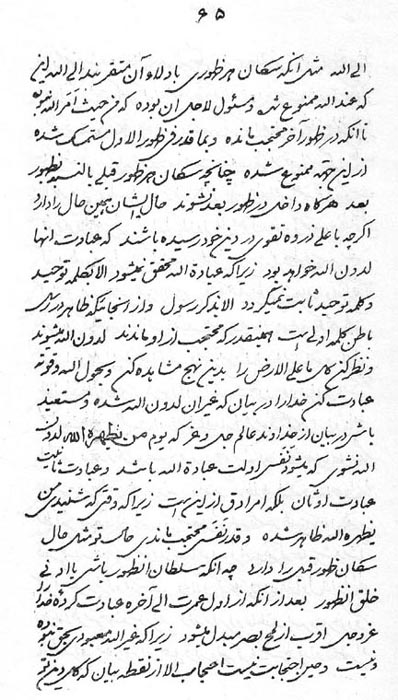 ۶۵
الی الله مثل آنکه سکان هر ظهوری
که عند الله ممنوع شده و مسئول لاجل آن بوده که من حیث امر الله نبوده
تا آنکه در ظهور آخر محتجب مانده و بما قدر فی ظهور الاول مستمسک شده
از این جهت ممنوع شده چنانچه سکان هر ظهور قبلی بالنسبه بظهور
بعد هرگاه داخل در ظهور بعد نشوند حال ایشان بهمین حال را دارد
اگرچه باعلی ذروه تقوی در دین خود رسیده باشند که عبادت آنها
لدون الله خواهد بود زیرا که عبادة الله محقق نمیشود الا بکلمه توحید
و کلمه توحید ثابت نمیگردد الا بذکر رسول و از آنجائیکه ظاهر در
باطن کلمه اولی است همینقدر که محتجب از او ماندند لدون الله میشوند
و نظر کن کل ما علی الارض را بدین نهج مشاهده کن و بحول الله و قوته
عبادت کن خدا را در بیان که غیر آن لدون الله شده و مستعیذ
باش در بیان از خداوند عالم جل و عز که یوم من یظهره الله لدون
الله نشوی که بشود نفس اولت عبادة الله باشد و عبادت ثانیت
عبادت اوثان بلکه امر ادق از این است زیرا که وقتی که شنیدی من
یظهره الله ظاهر شده و قدر نفسی محتجب ماندی حال تو مثل حال
سکان ظهور قبل را دارد چه آنکه سلطان آنظهور باشی یا ادنی
خلق آنظهور بعد از آنکه از اول عمرت الی آخره عبادت کرده خدا را
عز و جل اقرب از لمح بصر مبدل میشود زیرا که غیر الله معبودی بحق نبوده
و نیست و حین احتجابت نیست احتجاب الا از نقطه بیان که کل دین تو